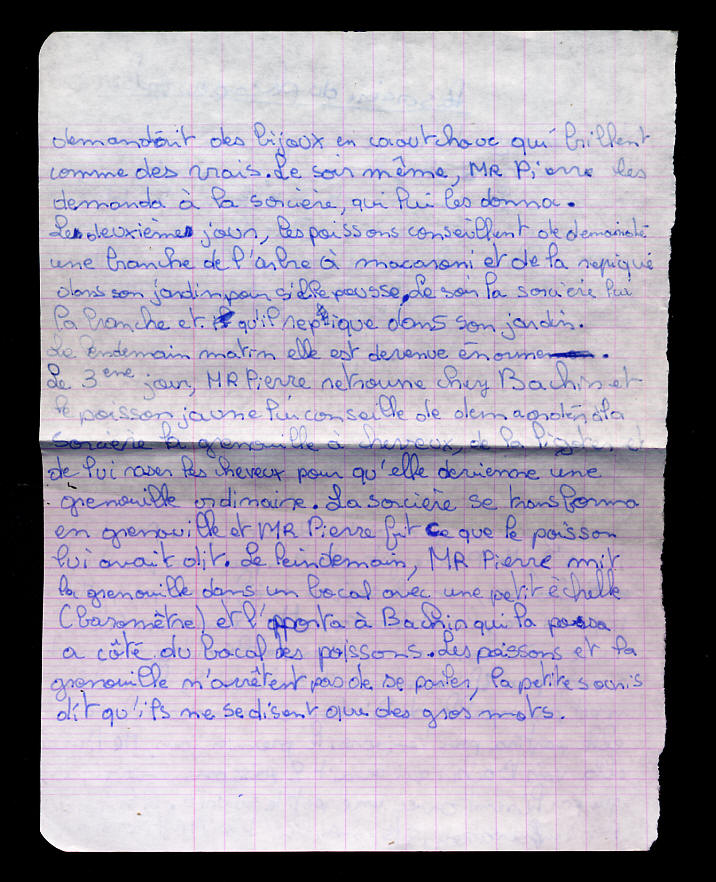 demandent des bijoux en caoutchouc qui brillent
comme des vrais. Le soir même, MR Pierre les
demanda à la sorcière, qui lui les donna.
Le deuxième jour, les poissons conseillent de demandé
une branche de l'arbre à macaroni et de la repiqué
dans son jardin pour s'elle pousse. Le soir la sorcière lui
la branche et qu'il repique dans son jardin.
Le lendemain matin elle est devenue énorme.
Le 3eme jour, MR Pierre retourne chez Bachin et
le poisson jaune lui conseille de à la
sorcière la grenouille à cheveux, de la ligoter et
de lui raser les cheveux pour qu'elle devienne une
grenouille ordinaire. La sorcière se transforma
en grenouille et MR Pierre fit ce que le poisson
lui avait dit. Le leindemain, MR Pierre mit
la grenouille dans un bocal avec une petit échelle
(baromètre) et l'apporta à Bachin qui la posa
a côté du bocal des poissons. Les poissons et la
grenouille n'arrêtent pas de se parler, la petite souris
dit qu'ils ne se disent que des gros mots.